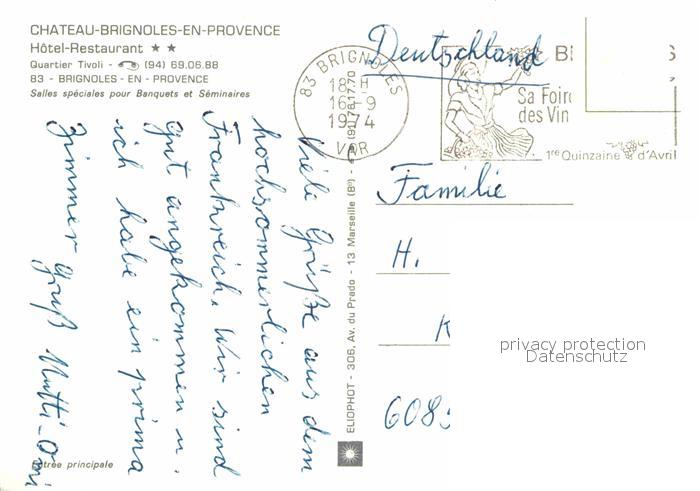 CHATEAU-BRIGNOLES-EN-PROVENCE
Hôtel-Restaurant ★★
Quartier Tivoli - ☎ (94) 69.06.88
83 - BRIGNOLES - EN - PROVENCE
Salles spéciales pour Banquets et Séminaires
Viele Grüße aus dem
hochsommerlichen
Frankreich. Wir sind
gut angekommen u.
ich habe ein prima
Zimmer Gruß Mutti-Omi
Entrée principale
ELIOPHOT - 306, Av. du Prado - 13 Marseille (8e) - ☎ (91) 76.17.70
83 BRIGNOLES
18 H
16-9
1974
VAR
Sa Foire
des Vin
1re Quinzaine d'Avril
Deutschland
Familie
H.
K
608
privacy protection
Datenschutz